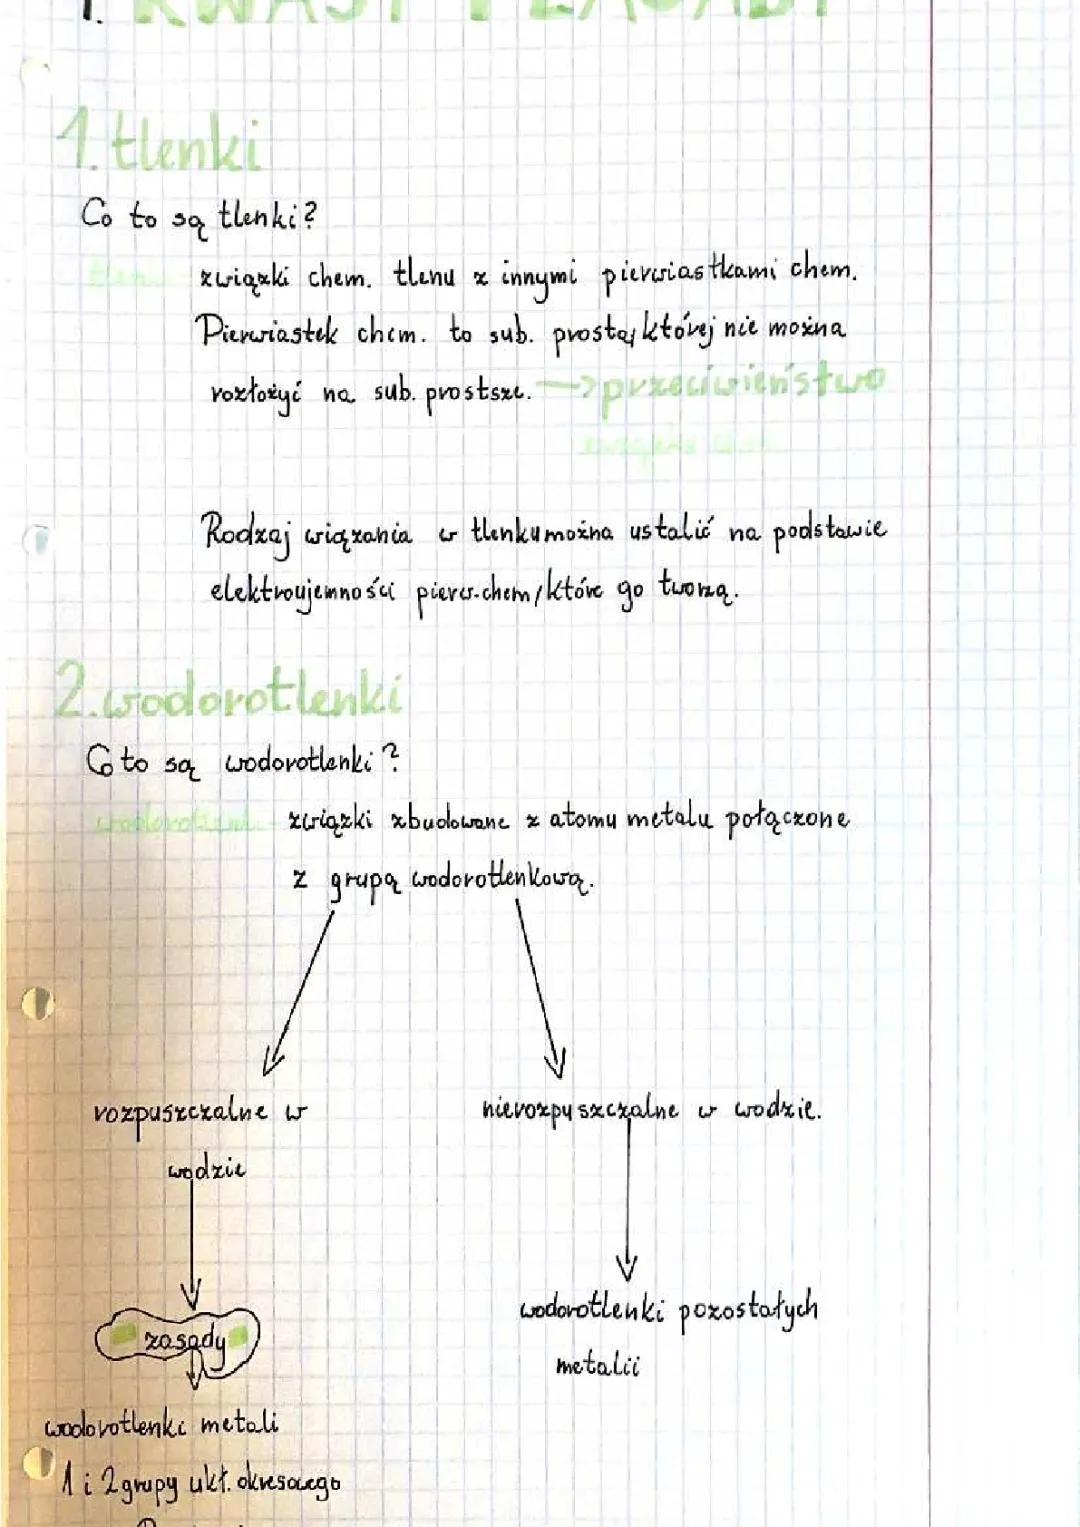 1. KWASY I ZASADY
1. tlenki
Co to są tlenki?
tlenki związki chem. tlenu z innymi pierwiastkami chem.
Pierwiastek chem. to sub. prosta, której nie można
rozłożyć na sub. prostsze. → przeciwieństwo
Rodzaj wiązania w tlenku można ustalić na podstawie
elektroujemności pierw. chem, które go tworzą.
2. wodorotlenki
Co to są wodorotlenki?
wodorotlenki - związki zbudowane z atomu metalu połączone
z grupą wodorotlenkową.
rozpuszczalne w nierozpuszczalne w wodzie.
wodzie
zasady wodorotlenki pozostałych
metalii
wodorotlenki metali
1 i 2 grupy ukł. okresowego